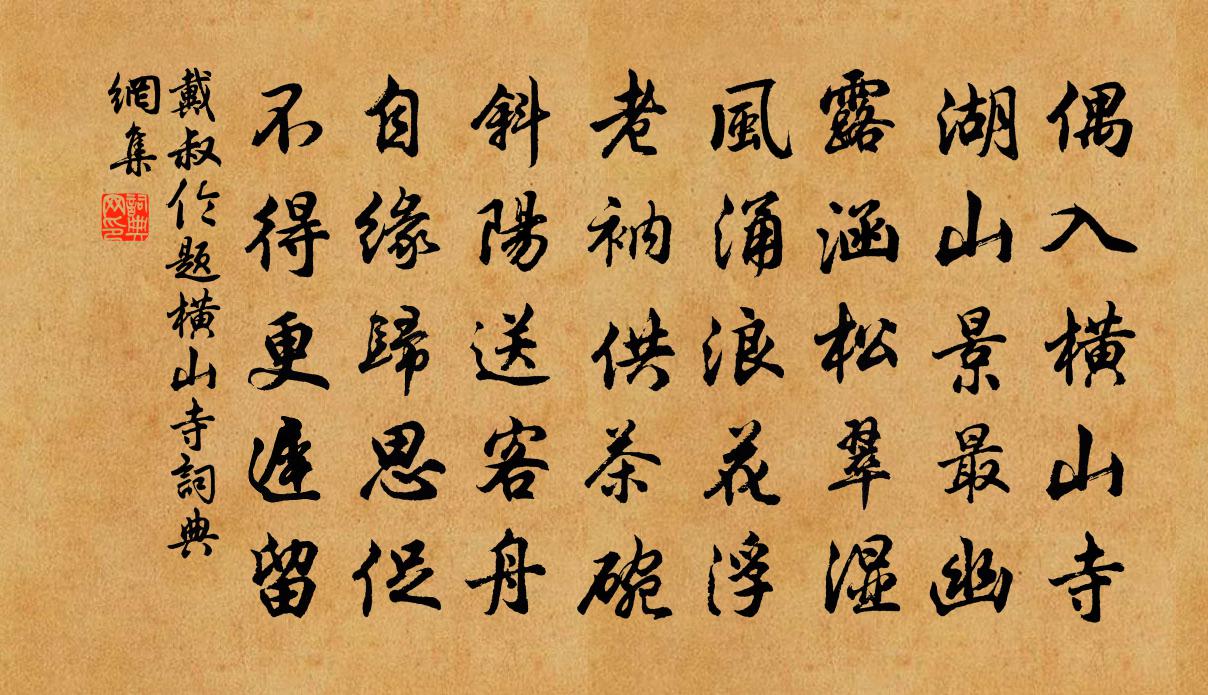 偶入橫山寺
湖山景最幽
露涵松翠濕
風涌浪花浮
老衲供茶碗
斜陽送客舟
自緣歸思促
不得更遲留
戴叔倫題橫山寺詞典
網集
詞典
网印